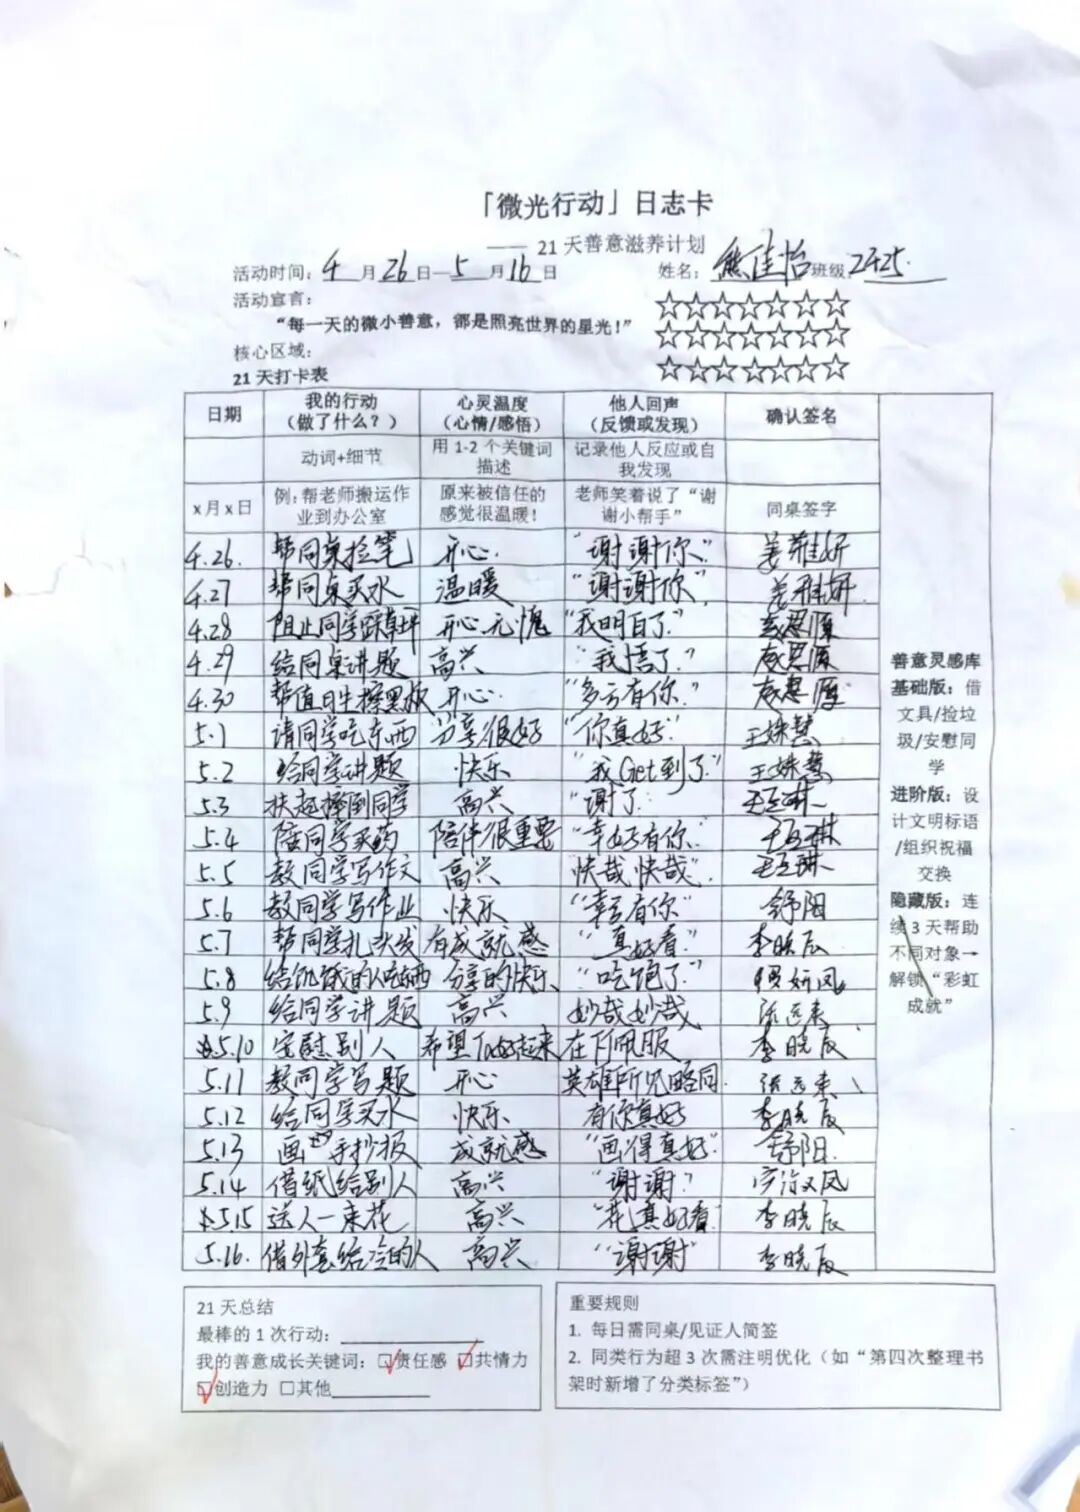 「微光行动」日志卡
—— 21天善意滋养计划
活动时间：4月26日—5月16日 姓名：熊佳怡 班级2425.
活动宣言：
“每一天的微小善意，都是照亮世界的星光！”
☆☆☆☆☆☆☆
☆☆☆☆☆☆☆
☆☆☆☆☆☆☆
核心区域：
21天打卡表
日期 我的行动（做了什么？） 心灵温度（心情/感悟） 他人回声（反馈或发现） 确认签名
动词+细节 用1-2个关键词描述 记录他人反应或自我发现
x月x日 例：帮老师搬运作业到办公室 原来被信任的感觉很温暖！ 老师笑着说了“谢谢小帮手” 同桌签字
4.26. 帮同桌捡笔 开心. “谢谢你.” 姜雅妍
4.27 帮同桌买水 温暖 “谢谢你” 姜雅妍.
4.28 阻止同学踩草坪 开心 无愧 “我明白了.”
4.29 给同桌讲题 高兴 “我悟了.”
4.30 帮值日生擦黑板 开心. “多亏有你.”
5.1 请同学吃东西 分享很好 “你真好.” 王姝慧
5.2 给同学讲题 快乐 “我Get到了.” 王姝慧
5.3 扶起摔倒同学 高兴 “谢了.
5.4 陪同学买药 陪伴很重要 “幸好有你.
5.5 教同学写作文 高兴 快哉快哉.
5.6 教同学写作业 快乐 “幸亏有你” 舒阳
5.7 帮同学扎头发 有成就感 “真好看.” 李晓辰
5.8 给饥饿的人吃东西 分享的快乐 “吃饱了.”
5.9 给同学讲题 高兴 妙哉妙哉 张远来
5.10 安慰别人 希望TA好起来 在下佩服 李晓辰
5.11 教同学写题 开心 英雄所见略同. 张远来
5.12 给同学买水 快乐 有你真好 李晓辰
5.13 画手抄报 成就感 “画得真好.” 舒阳.
5.14 借纸给别人 高兴 “谢谢”
5.15 送人一束花 高兴 “花真好看” 李晓辰
5.16. 借外套给冷的人 高兴 “谢谢” 李晓辰
善意灵感库
基础版：借
文具/捡垃
圾/安慰同
学
进阶版：设
计文明标语
/组织祝福
交换
隐藏版：连
续3天帮助
不同对象→
解锁“彩虹
成就”
21天总结
最棒的1次行动：
我的善意成长关键词：☑责任感 ☑共情力
☑创造力 □其他
重要规则
1. 每日需同桌/见证人简签
2. 同类行为超3次需注明优化（如“第四次整理书
架时新增了分类标签”）